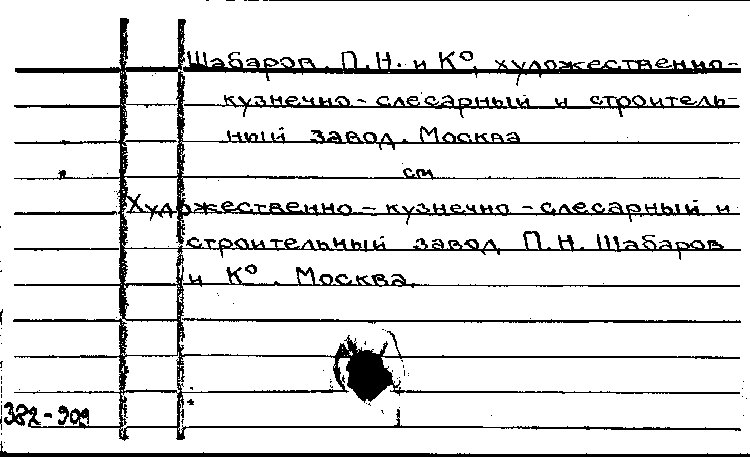 Шабаров. П.Н. и К⁰, художественно-
кузнечно-слесарный и строитель-
ный завод. Москва
см
Художественно-кузнечно-слесарный и
строительный завод П.Н. Шабаров
и К⁰. Москва.
382-909